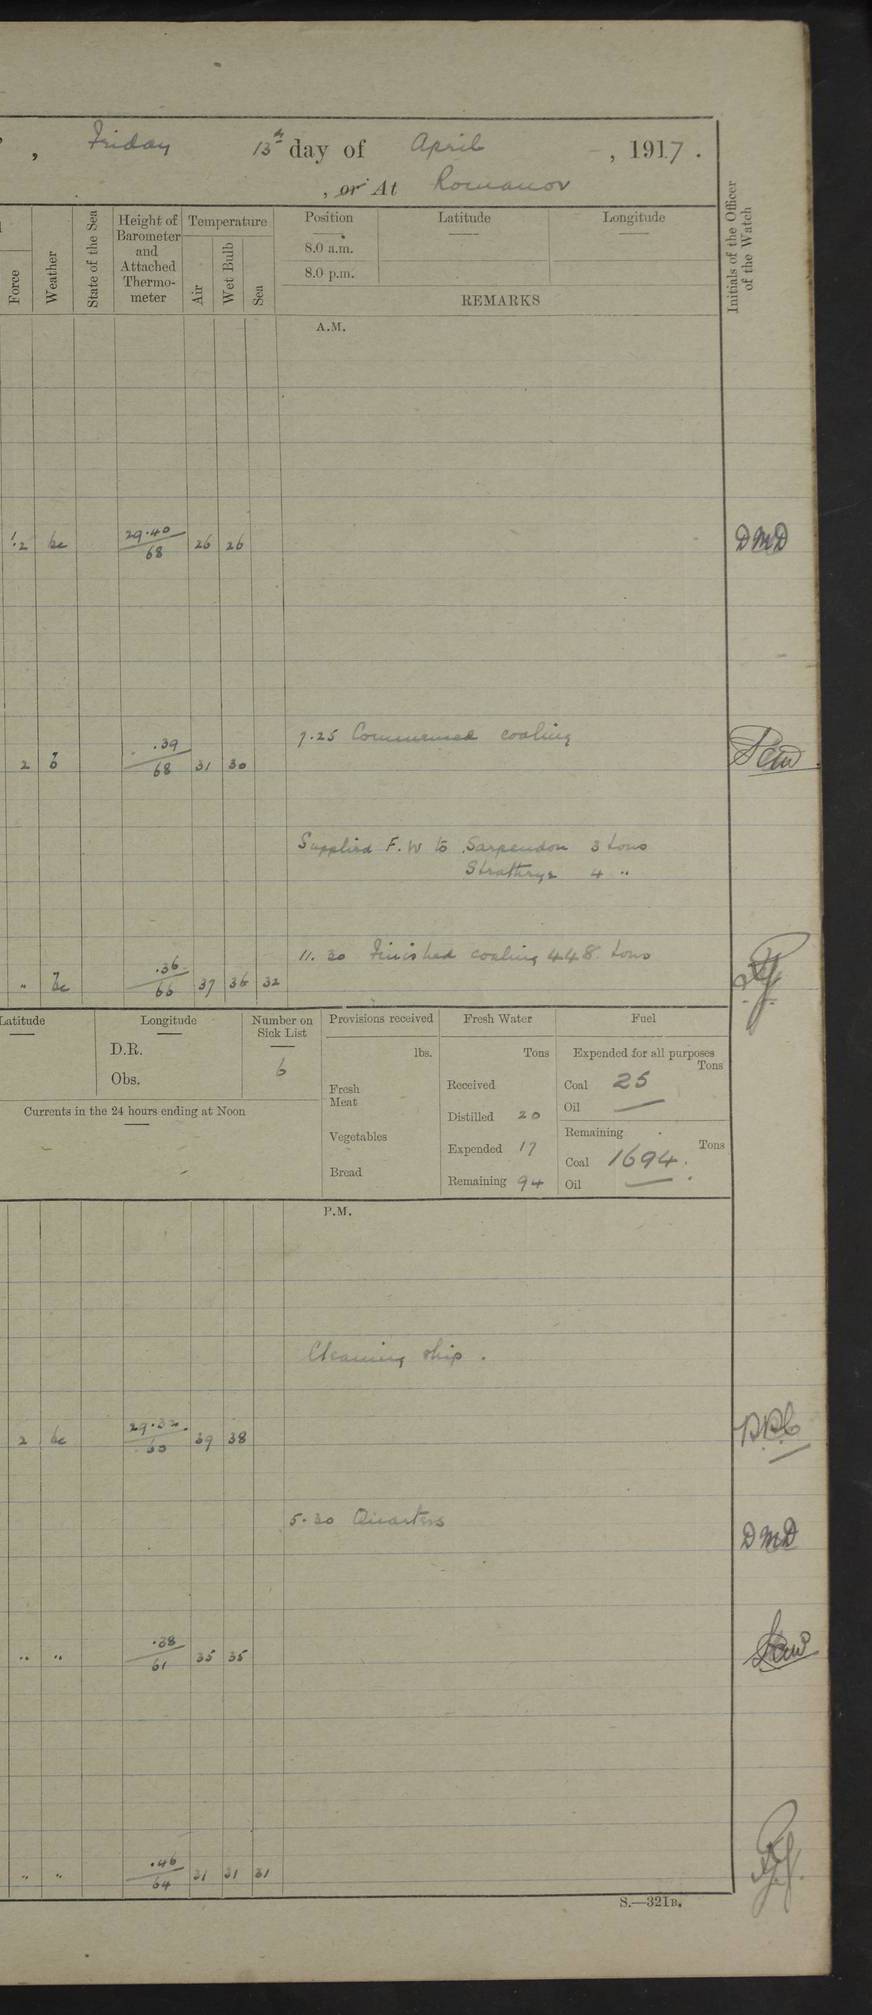 , Friday 13th day of April , 1917.
, or At Romanov
Force
Weather
State of the Sea
Height of Barometer and Attached Thermo-meter
Temperature
Air
Wet Bulb
Sea
Position Latitude Longitude
8.0 a.m.
8.0 p.m.
REMARKS
Initials of the Officer of the Watch
A.M.
1.2 bc 29.40 / 68 26 26 DMD
7.25 Commenced coaling
2 .39 / 68 31 30
Supplied F.W to Sarpendon 3 tons
4 "
11.30 Finished coaling 448 tons
" .36 / 66 37 36 32
Latitude Longitude Number on Sick List Provisions received Fresh Water Fuel
D.R.
Obs.
6
lbs. Tons Expended for all purposes Tons
Fresh Meat Received Coal 25
Distilled 20 Oil —
Currents in the 24 hours ending at Noon
Vegetables Expended 17 Remaining Tons
Coal 1694.
Bread Remaining 94 Oil —
P.M.
Cleaning ship.
2 bc 29.32 / 60 39 38
5.30 Quarters DMD
" " .38 / 61 35 35
" " .46 / 64 31 31 31
S.—321B.